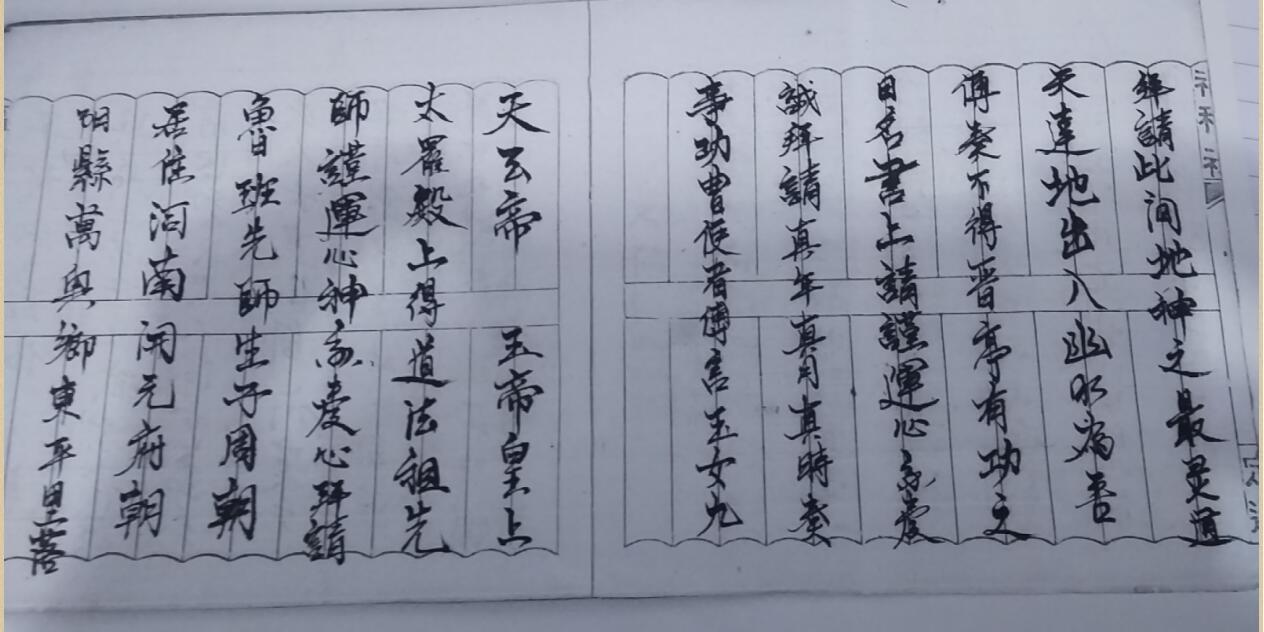 拜請此间地神之最灵通
天達地出入幽氷為吾
傳奏不得晋亭有功之
日名書上請謹運心
誠拜請真年真月真時奏
事功曹使者傳言玉女九
天玄帝玉帝皇上
太羅殿上得道法祖先
師謹運心神心拜請
魯班先師生子周朝
居住河南開元府朝
明縣萬興鄉東平里落